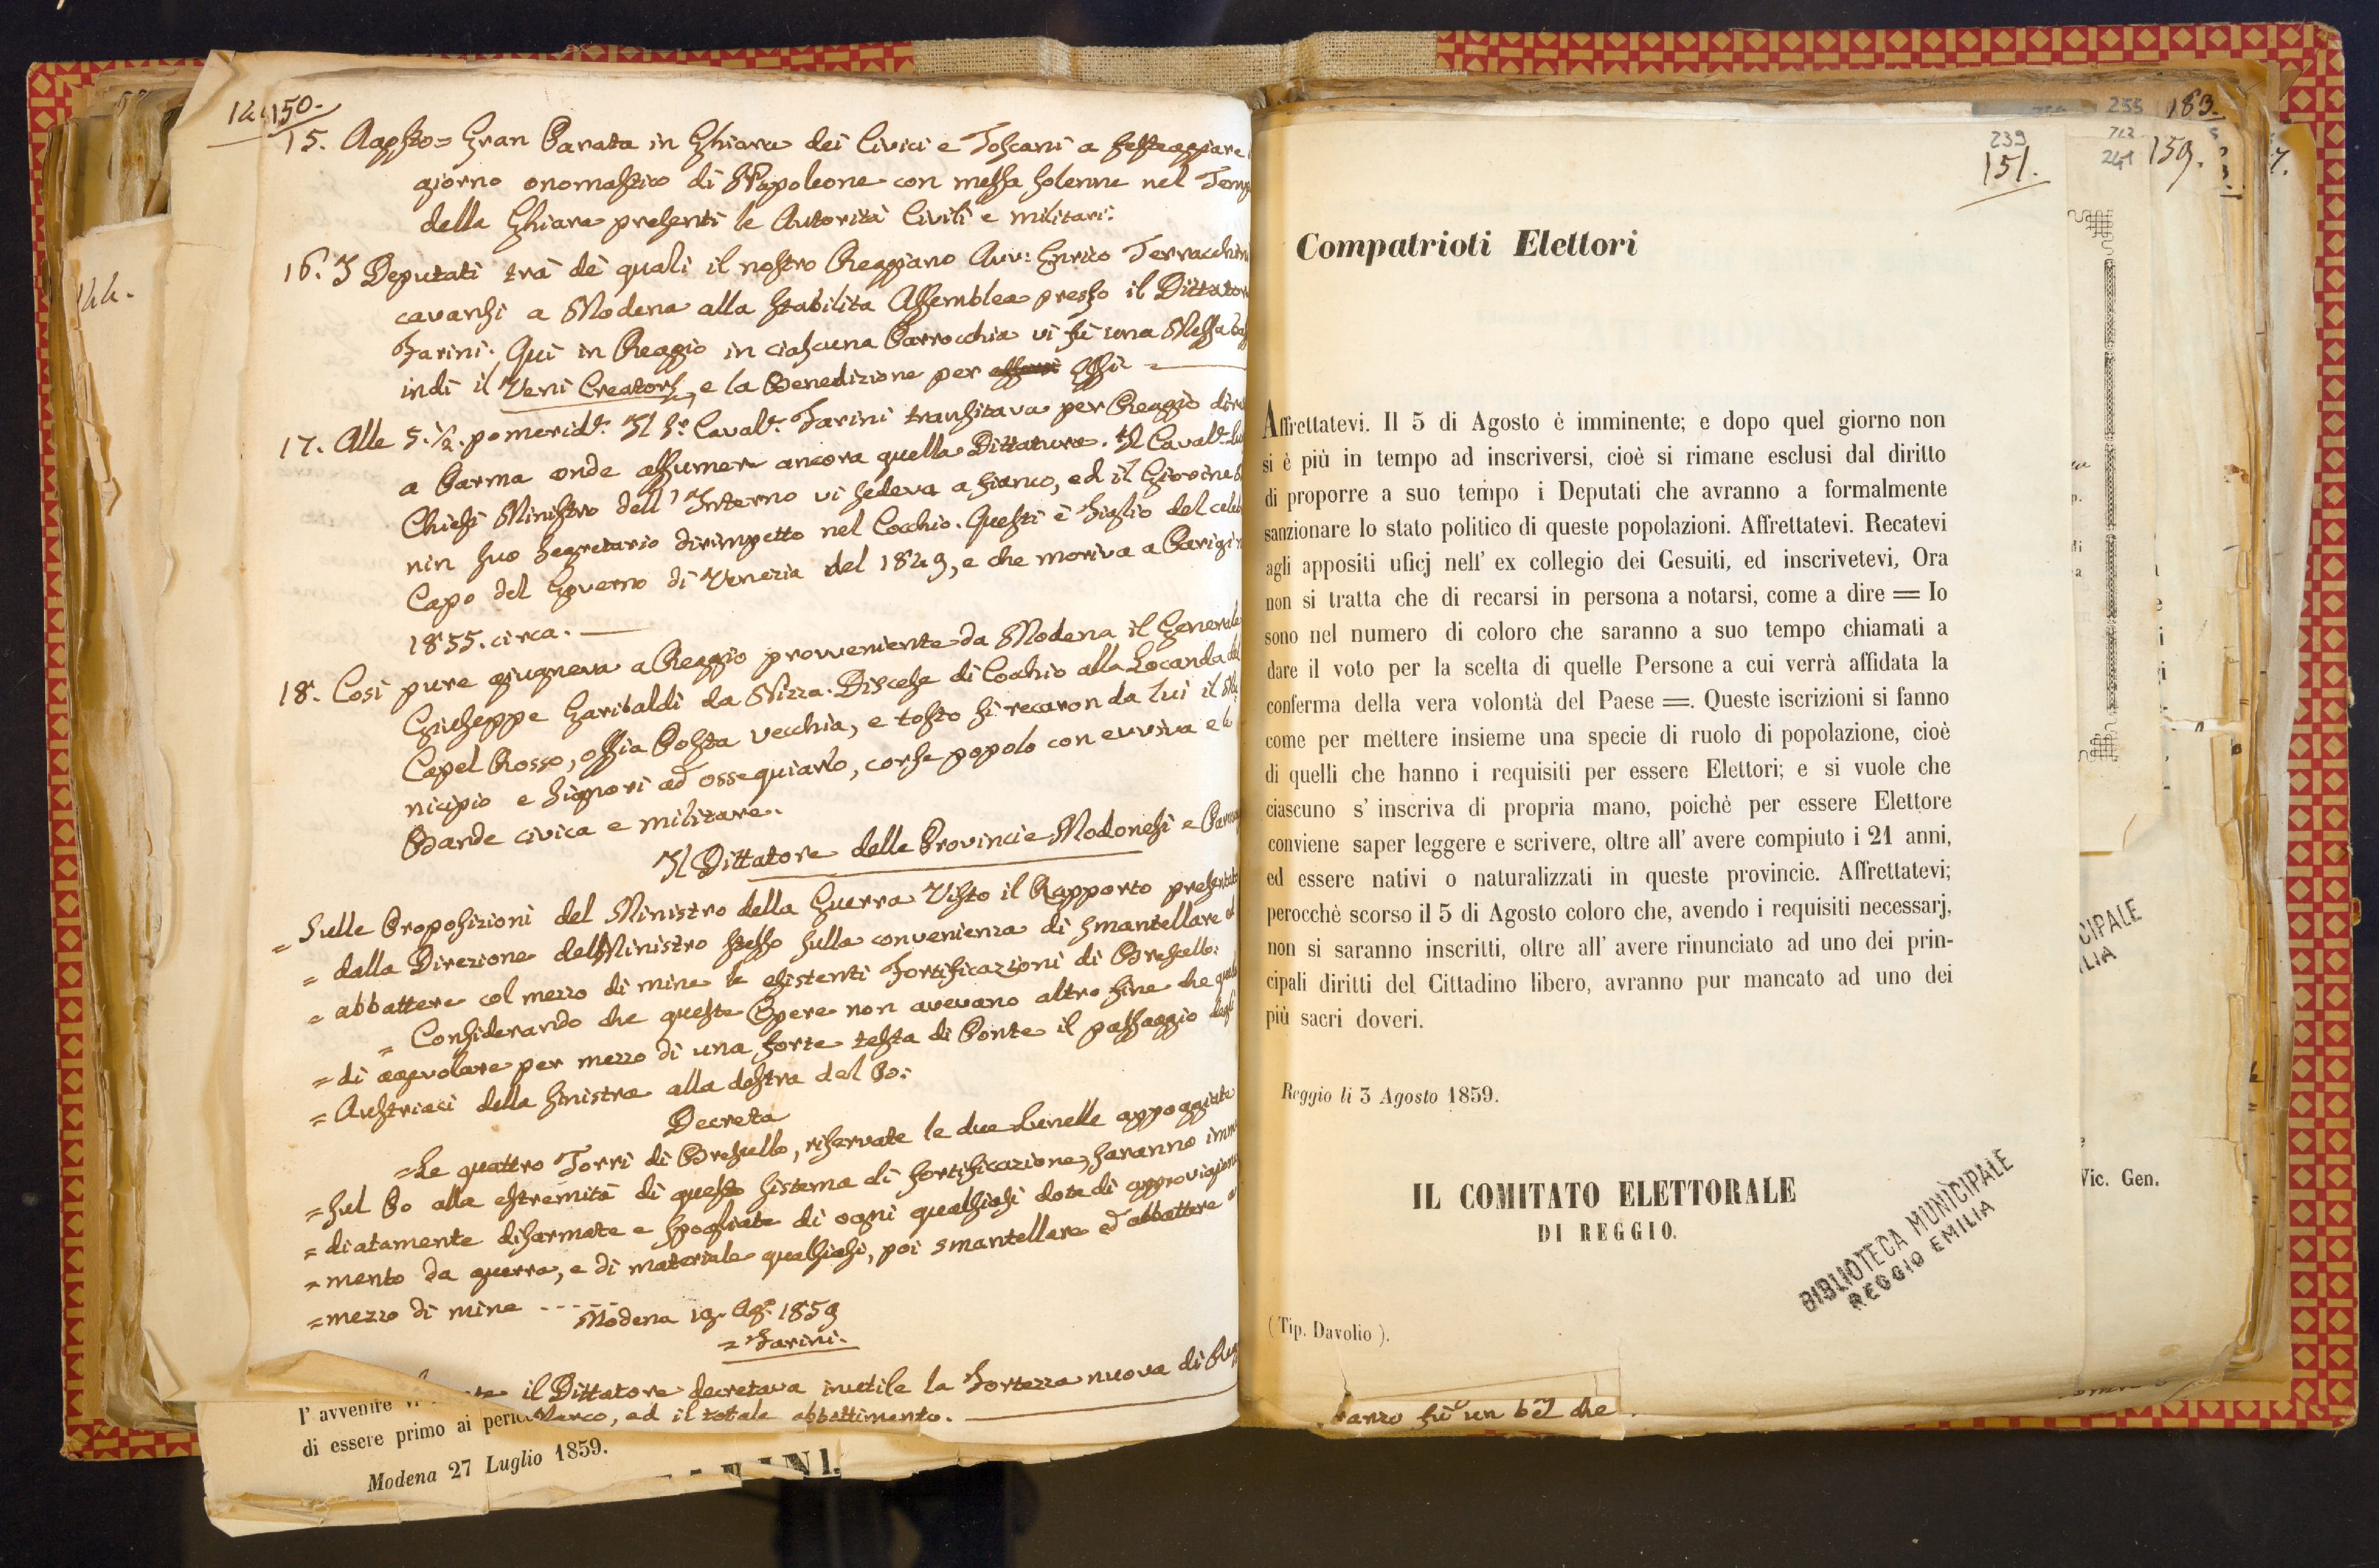 150.
15. Agosto = Gran Parata in Ghiara dei Civici e Toscani a festeggiare
giorno onomastico di Napoleone con messa solenne nel
della Ghiara presenti le Autorità Civili e militari.
16. I Deputati trà dè quali il nostro Reggiano Avv: Enrico
cavansi a Modena alla stabilita Assemblea presso il
Farini. Qui in Reggio in ciascuna Parrocchia vi fù una Messa
indi il Veni Creator, e la Benedizione per Essi
17. Alle 5. 1/2. pomerid.e Il Sr. Caval.e Farini transitava per Reggio
a Parma onde assumer ancora quella Dittatura. Il Caval.e
Chiesi Ministro dell' Interno vi sedeva a fianco, ed il Giovine
nin suo segretario dirimpetto nel Cocchio. Questi è figlio del
Capo del Governo di Venezia del 1849, e che moriva a Parigi
1855. circa.
18. Così pure giugneva a Reggio provveniente da Modena il Generale
Giuseppe Garibaldi da Nizza. Discese di Cocchio alla Locanda
Capel Rosso, ossia Posta vecchia, e tosto si recaron da lui il
nicipio e signori ad ossequiarlo, corse popolo con evviva e
Bande civica e militare.
Il Dittatore delle Provincie Modonesi e
= Sulle Proposizioni del Ministro della Guerra Visto il Rapporto
= dalla Direzione del Ministro stesso sulla convenienza di smantellare
= abbattere col mezzo di mine le esistenti Fortificazioni di Brescello:
= Considerando che queste Opere non avevano altro fine che
= di agevolare per mezzo di una forte testa di Ponte il passaggio
= Austriaci della sinistra alla destra del Po:
Decreta
= Le quattro Torri di Bresello, riservate le due Lunelle appoggiate
= sul Po alla estremità di questo sistema di fortificazione, saranno
= diatamente disarmate e spogliate di ogni qualsiasi dota di
= mento da guerra, e di materiale qualsiasi, poi smantellare ed abbattere
= mezzo di mine
Modena 19. Ag.o 1859
= Farini.
il Dittatore decretava inutile la Fortezza nuova di
ed il totale abbattimento.
l' avvenire
di essere primo ai
Modena 27 Luglio 1859.
239
151.
Compatrioti Elettori
Affrettatevi. Il 5 di Agosto è imminente; e dopo quel giorno non
si è più in tempo ad inscriversi, cioè si rimane esclusi dal diritto
di proporre a suo tempo i Deputati che avranno a formalmente
sanzionare lo stato politico di queste popolazioni. Affrettatevi. Recatevi
agli appositi uficj nell' ex collegio dei Gesuiti, ed inscrivetevi, Ora
non si tratta che di recarsi in persona a notarsi, come a dire = Io
sono nel numero di coloro che saranno a suo tempo chiamati a
dare il voto per la scelta di quelle Persone a cui verrà affidata la
conferma della vera volontà del Paese =. Queste iscrizioni si fanno
come per mettere insieme una specie di ruolo di popolazione, cioè
di quelli che hanno i requisiti per essere Elettori; e si vuole che
ciascuno s' inscriva di propria mano, poichè per essere Elettore
conviene saper leggere e scrivere, oltre all' avere compiuto i 21 anni,
ed essere nativi o naturalizzati in queste provincie. Affrettatevi;
perocchè scorso il 5 di Agosto coloro che, avendo i requisiti necessarj,
non si saranno inscritti, oltre all' avere rinunciato ad uno dei prin-
cipali diritti del Cittadino libero, avranno pur mancato ad uno dei
più sacri doveri.
Reggio li 3 Agosto 1859.
IL COMITATO ELETTORALE
DI REGGIO.
BIBLIOTECA MUNICIPALE
REGGIO EMILIA
(Tip. Davolio).
fù un bel che
183.
159.
Vic. Gen.